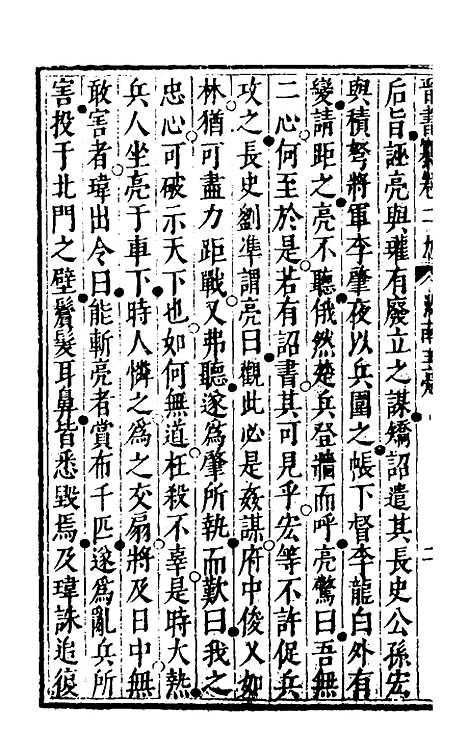 后旨誣亮與瓘有廢立之謀矯詔遣其長史公孫宏
與積弩將軍李肇夜以兵圍之帳下督李龍白外有
變請距之亮不聽俄然楚兵登牆而呼亮驚曰吾無
二心何至於是若有詔書其可見乎宏等不許促兵
攻之長史劉準謂亮曰觀此必是姦謀府中俊乂如
林猶可盡力距戰又弗聽遂爲肇所執而歎曰我之
忠心可破示天下也如何無道枉殺不辜是時大熱
兵人坐亮于車下時人憐之爲之交扇將及日中無
敢害者瑋出令曰能斬亮者賞布千匹遂爲亂兵所
害投于北門之壁鬢髮耳鼻皆悉毀焉及瑋誅追復